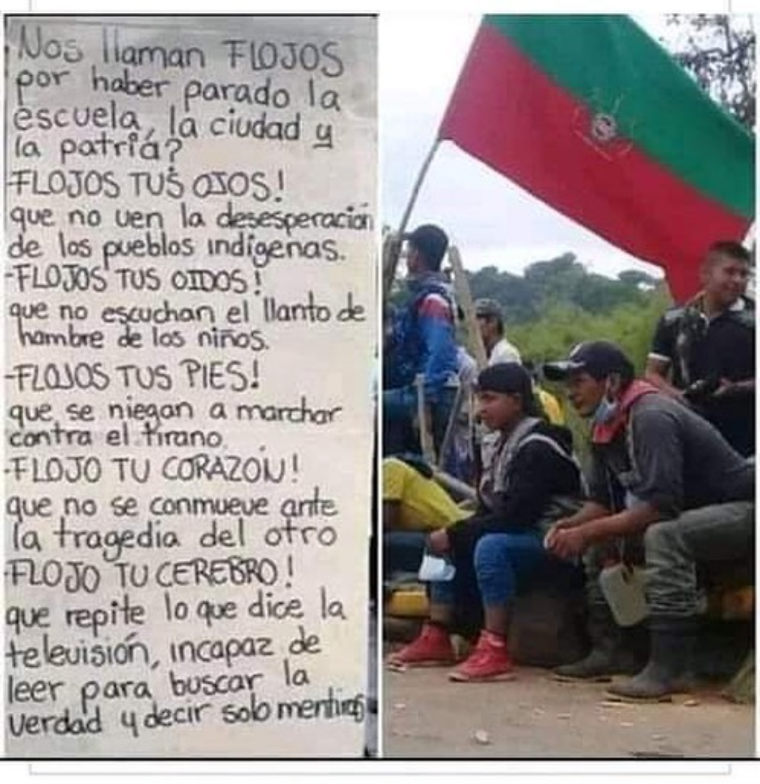 Nos llaman FLOJOS
por haber parado la
escuela, la ciudad y
la patria?
-FLOJOS TUS OJOS!
que no ven la desesperación
de los pueblos indígenas.
-FLOJOS TUS OIDOS!
que no escuchan el llanto de
hambre de los niños.
-FLOJOS TUS PIES!
que se niegan a marchar
contra el tirano.
-FLOJO TU CORAZON!
que no se conmueve ante
la tragedia del otro
-FLOJO TU CEREBRO!
que repite lo que dice la
televisión, incapaz de
leer para buscar la
verdad y decir solo mentiras